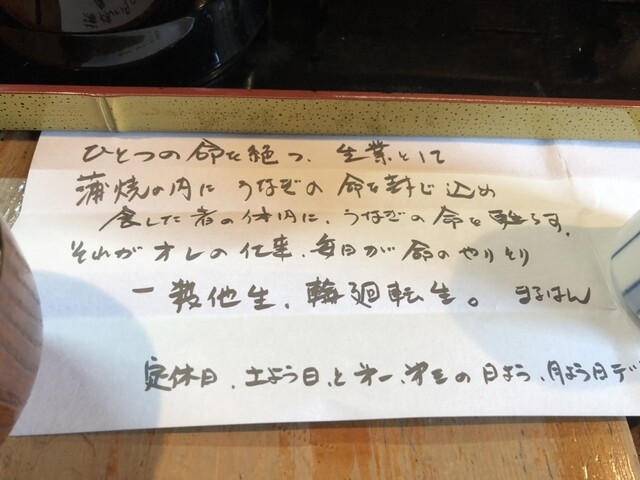 ひとつの命を絶つ、生業として
蒲焼の内に うなぎの 命を封じ込め
食した者の体内に、うなぎの命を宿らす。
それが オレの仕事、毎日が 命のやりとり
一殺他生、輪廻転生。 まるはん
定休日、土よう日、と 第一、第三の 日よう、月よう日デ